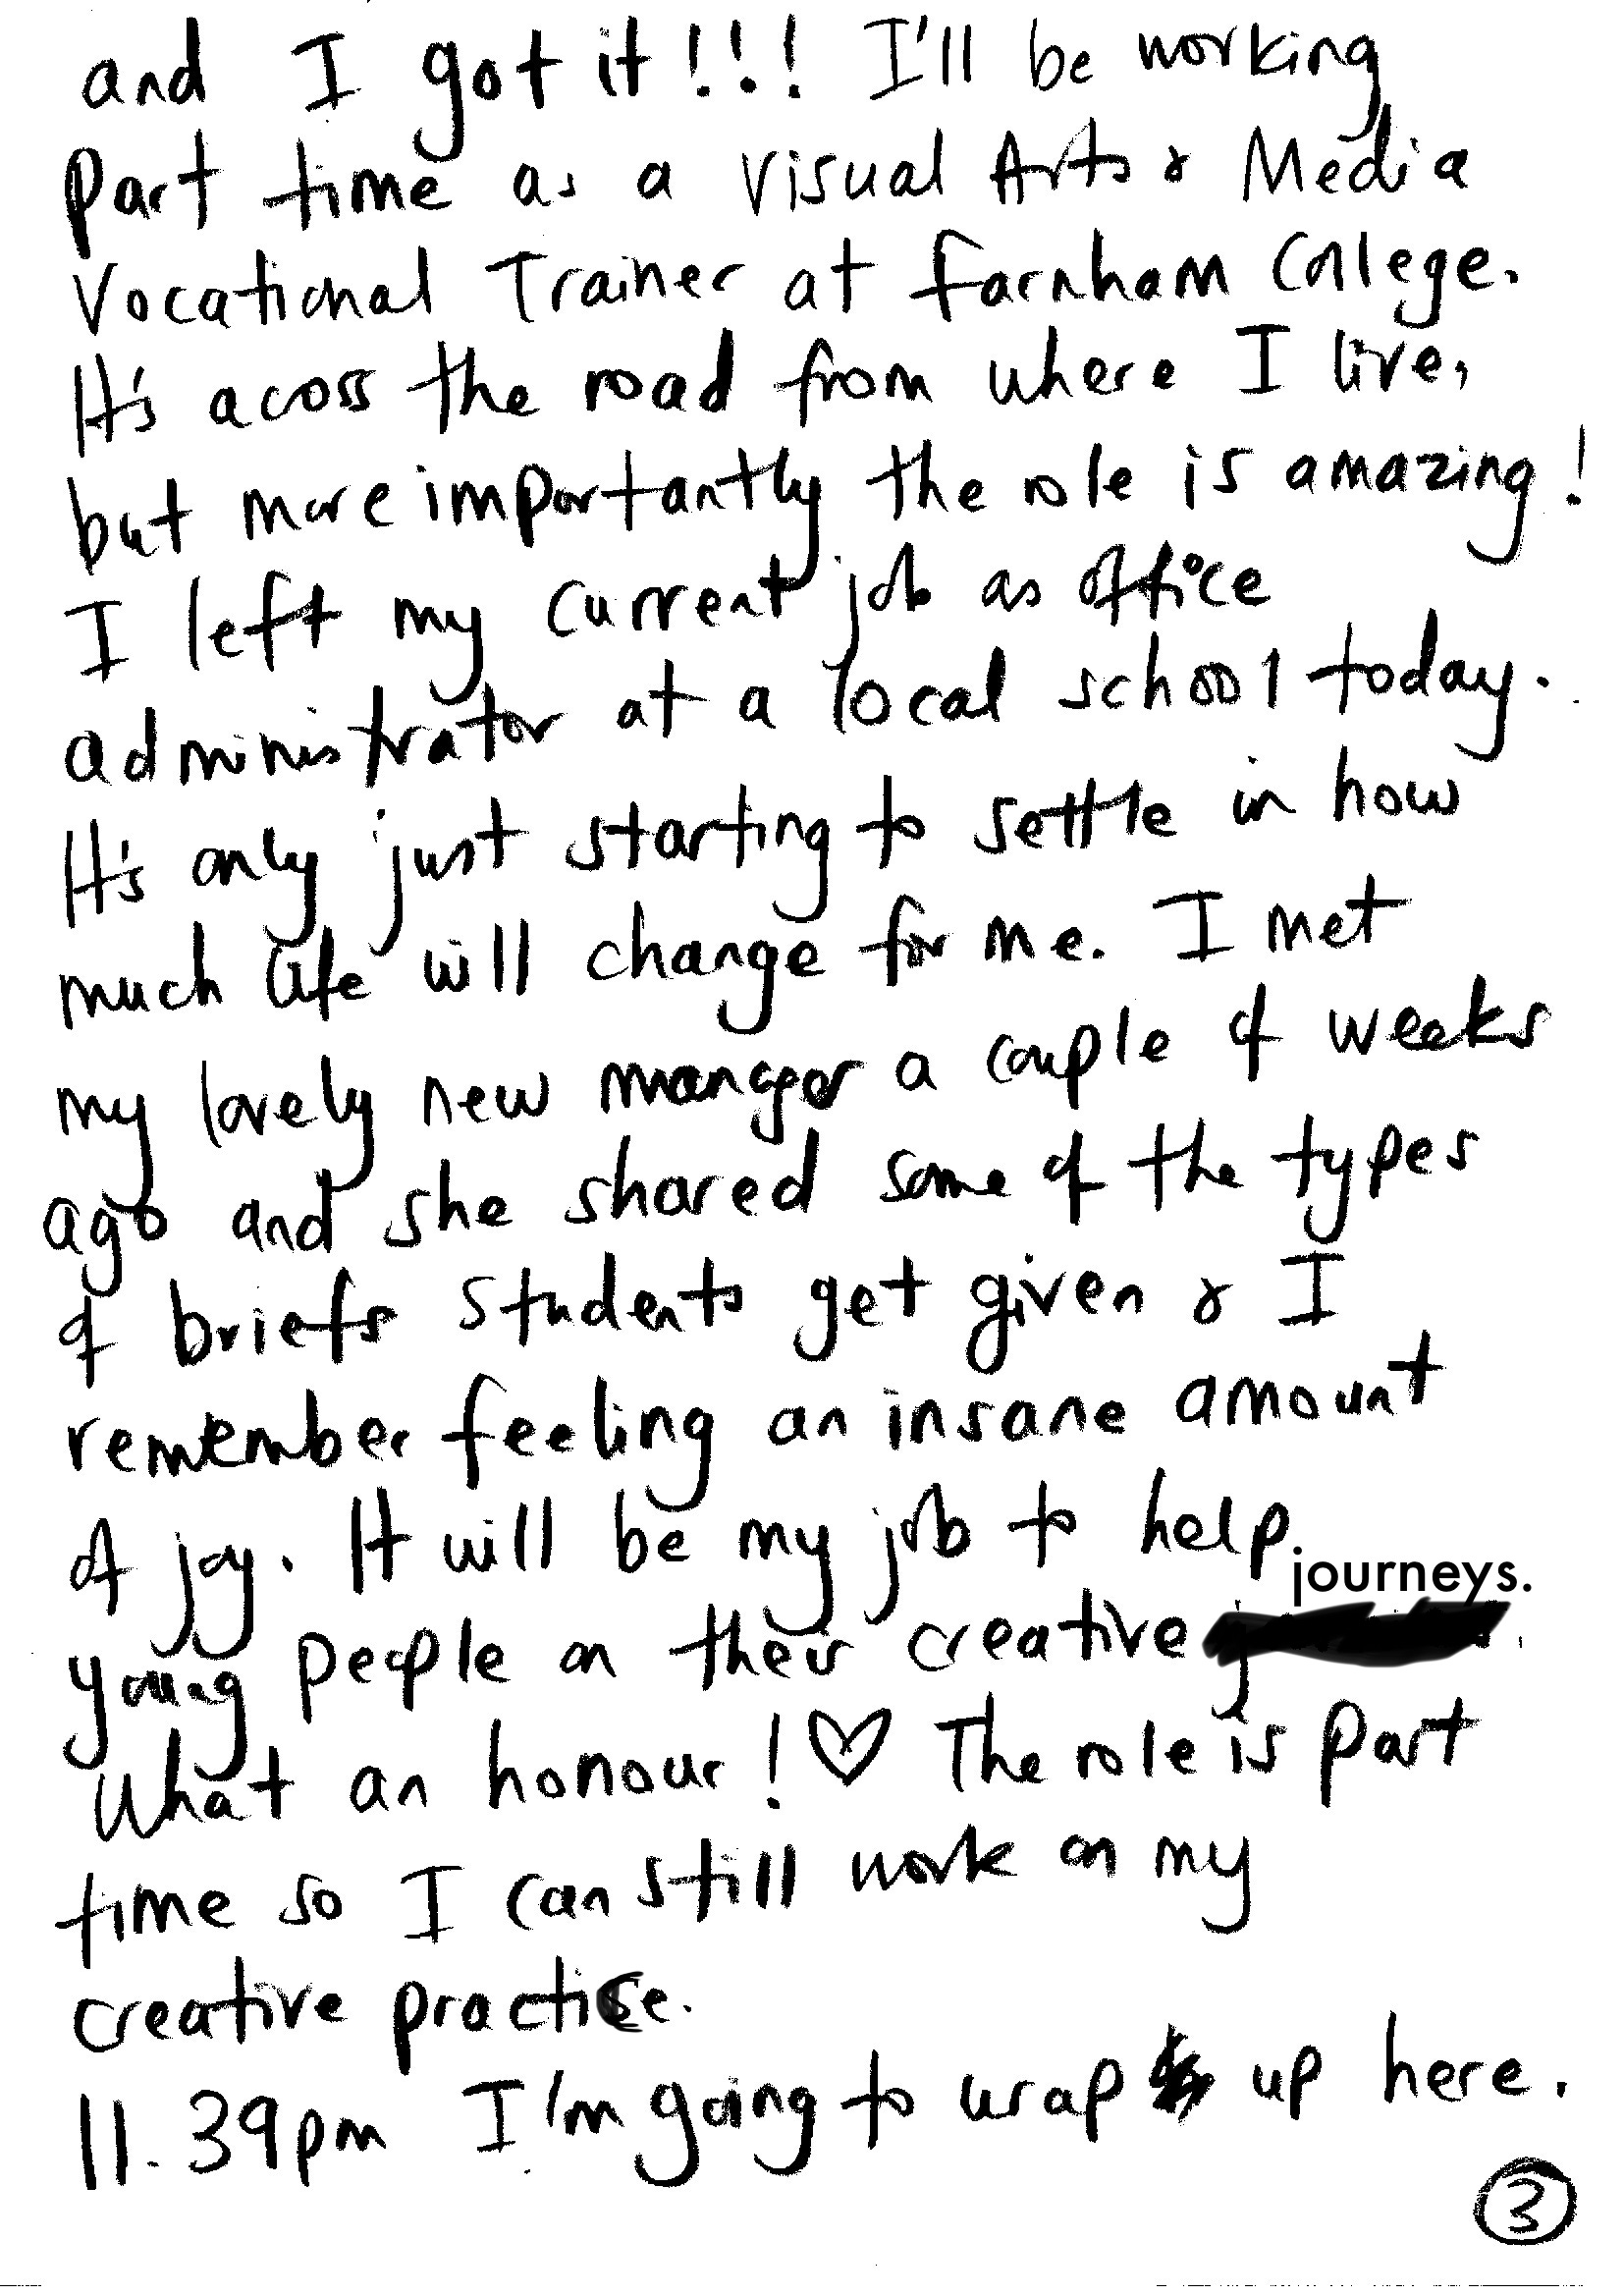 and I got it!!! I'll be working
part time as a Visual Arts & Media
Vocational Trainer at Farnham College.
It's acoss the road from where I live,
but more importantly the role is amazing!
I left my current job as office
administrator at a local school today.
It's only just starting to settle in how
much life will change for me. I met
my lovely new manager a couple of weeks
ago and she shared some of the types
of briefs students get given & I
remember feeling an insane amount
of joy. It will be my job to help
young people on their creative journeys.
What an honour! ♡ The role is part
time so I can still work on my
creative practice.
11.39pm I'm going to wrap up here.
3